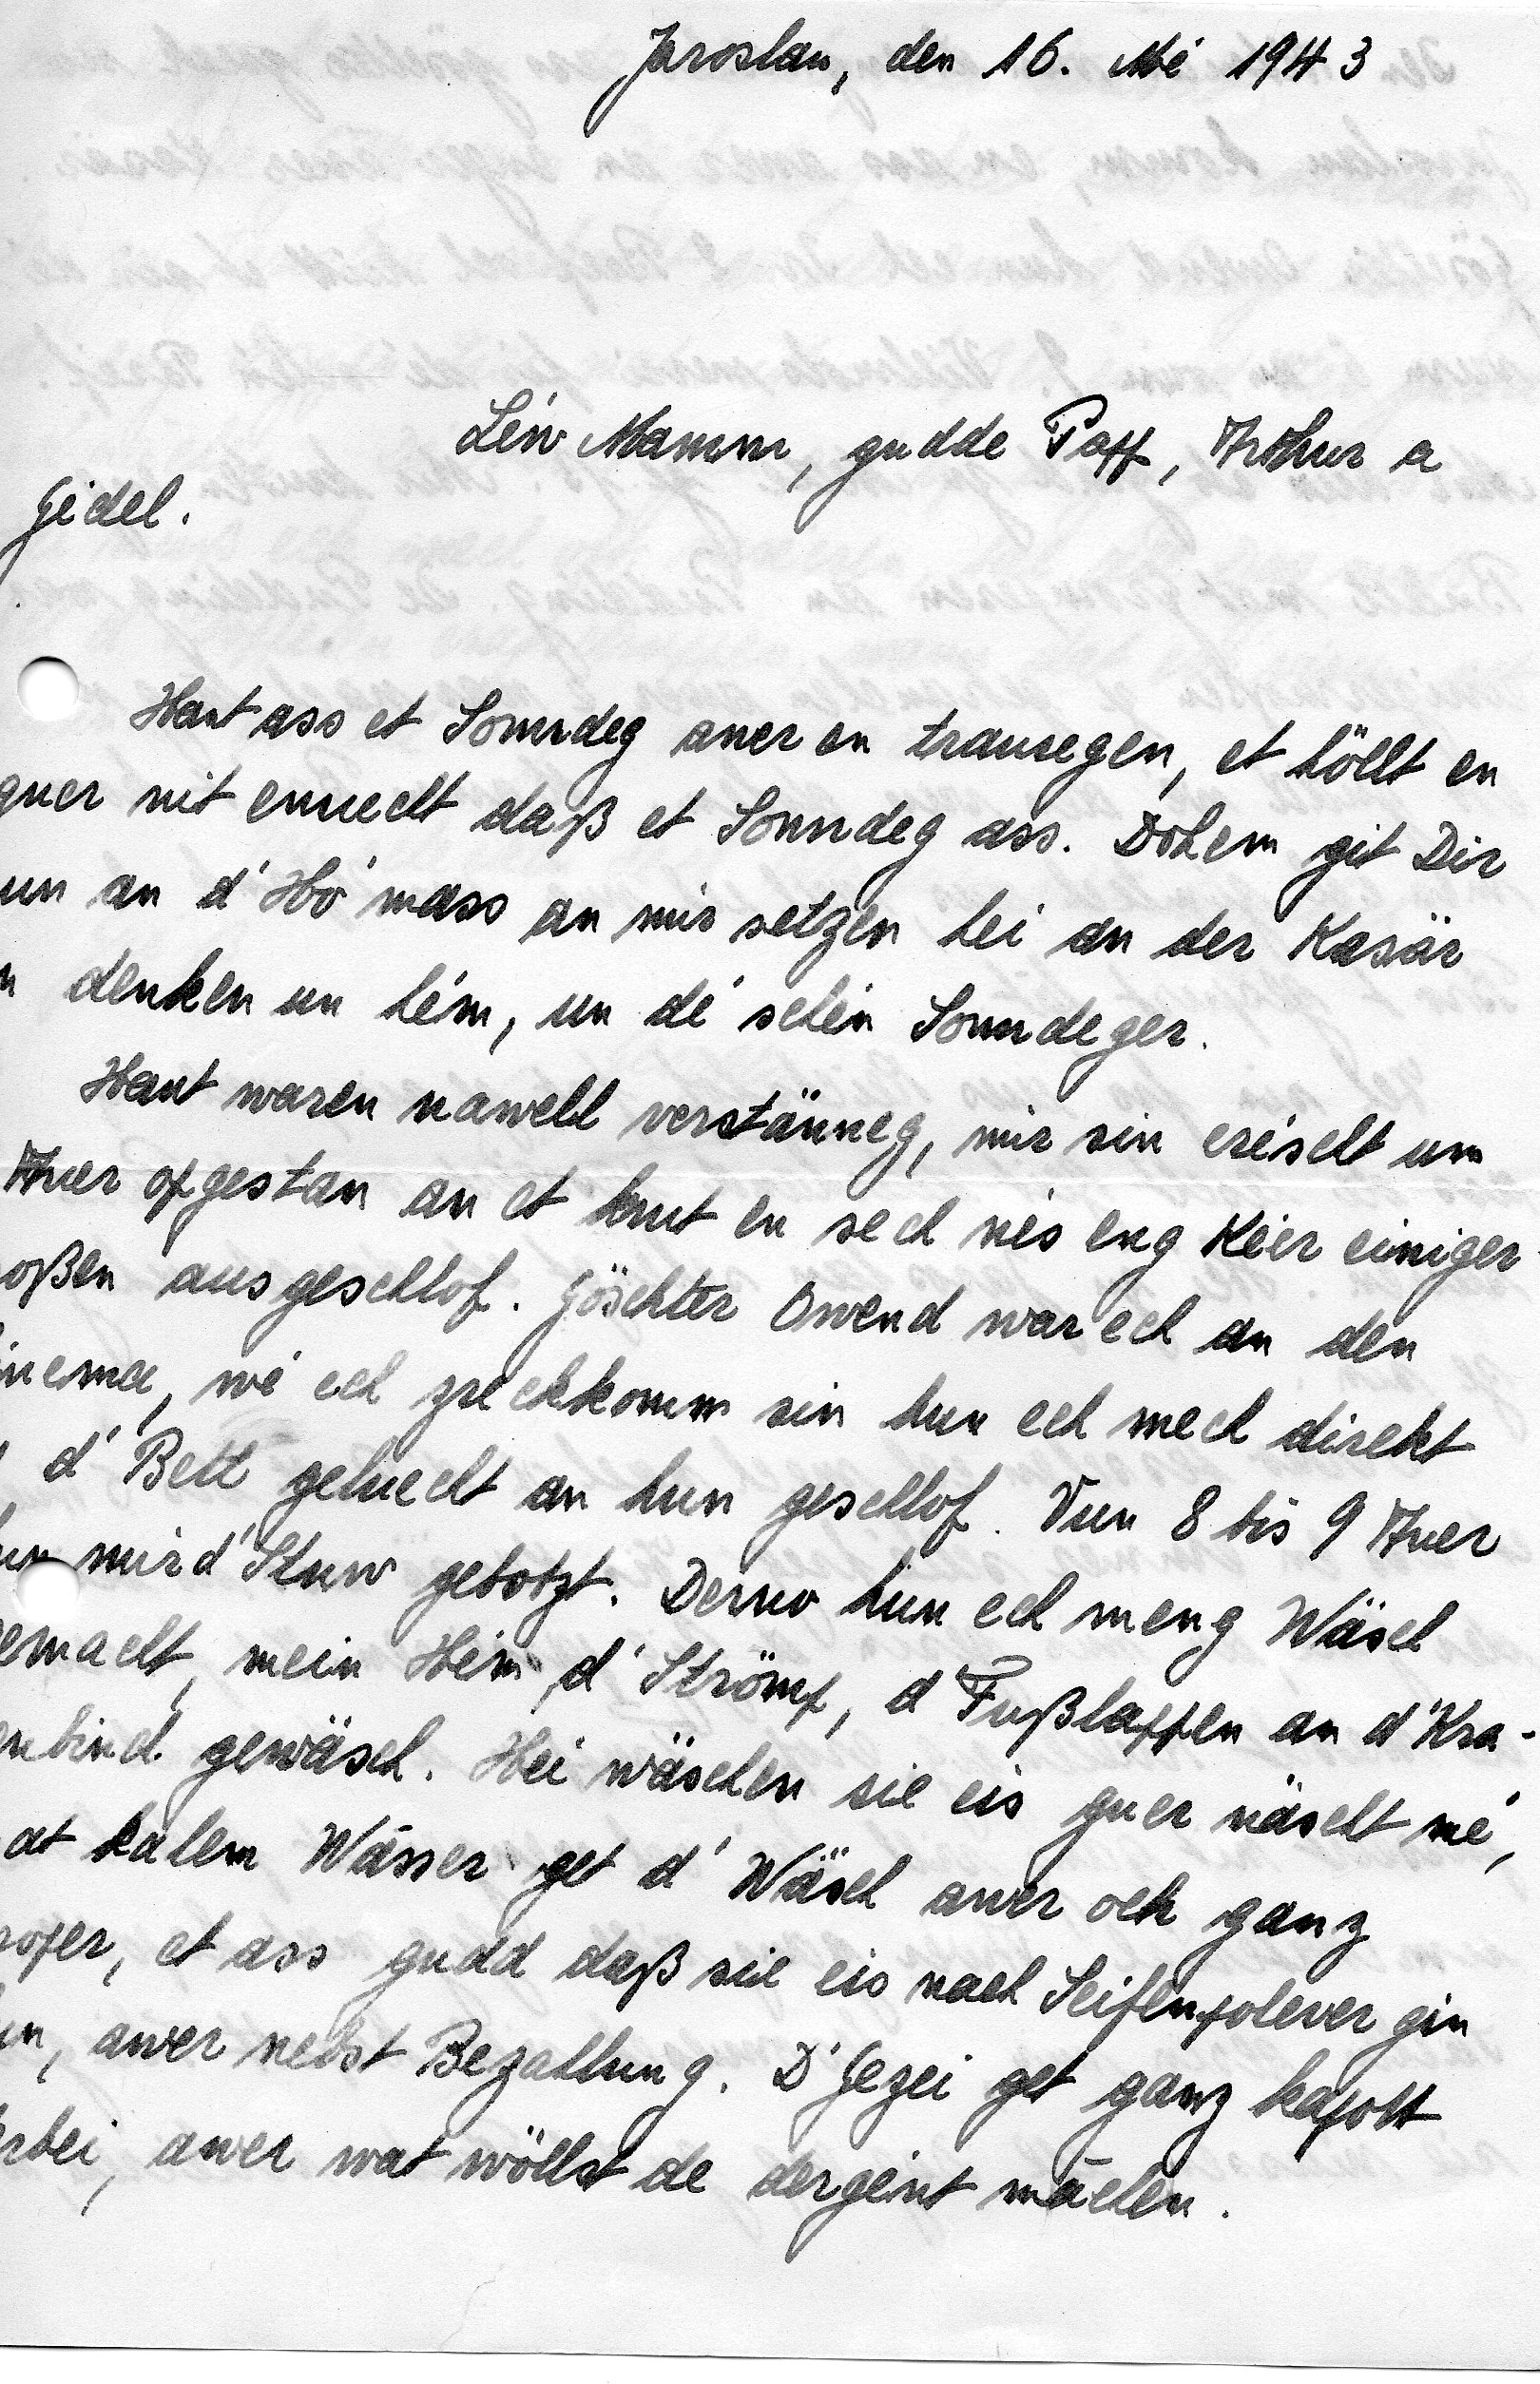 Jaroslau, den 16. Mé 1943
Léiw Mamm, gudde Papp, Arthur a
Gidel.
Haut ass et Sonndeg awer en trauregen, et höllt en
guer nit emuecht daß et Sonndeg ass. Dohem git Dir
un an d'Hó'mass an mir setzen hei an der Kasär
denken un hém, un dé schéin Sonndeger.
Haut waren nawell verstänneg, mir sin eréischt um
Auer opgestan an et hut en sech nés eng Kéier einiger
oßen ausgeschlof. Göschter Owend war ech an den
inema, wé ech zreckkomm sin hun ech mech direkt
d'Bett geluecht an hun geschlof. Vun 8 bis 9 Auer
un mir d'Stuw gebotzt. Derno hun ech meng Wäsch
emacht, mein Hém, d'Strömp, d'Fußlappen an d'Kra-
enbind gewäsch. Hei wäschen sie eis guer näscht mé,
at kalem Wässer get d'Wäsch awer och ganz
roper, et ass gudd daß sie eis nach Seifenpolever gin
un, awer nebst Bezahlung. D'Gezei get ganz kapott
rbei, awer wat wöllst de dergéint mächen.